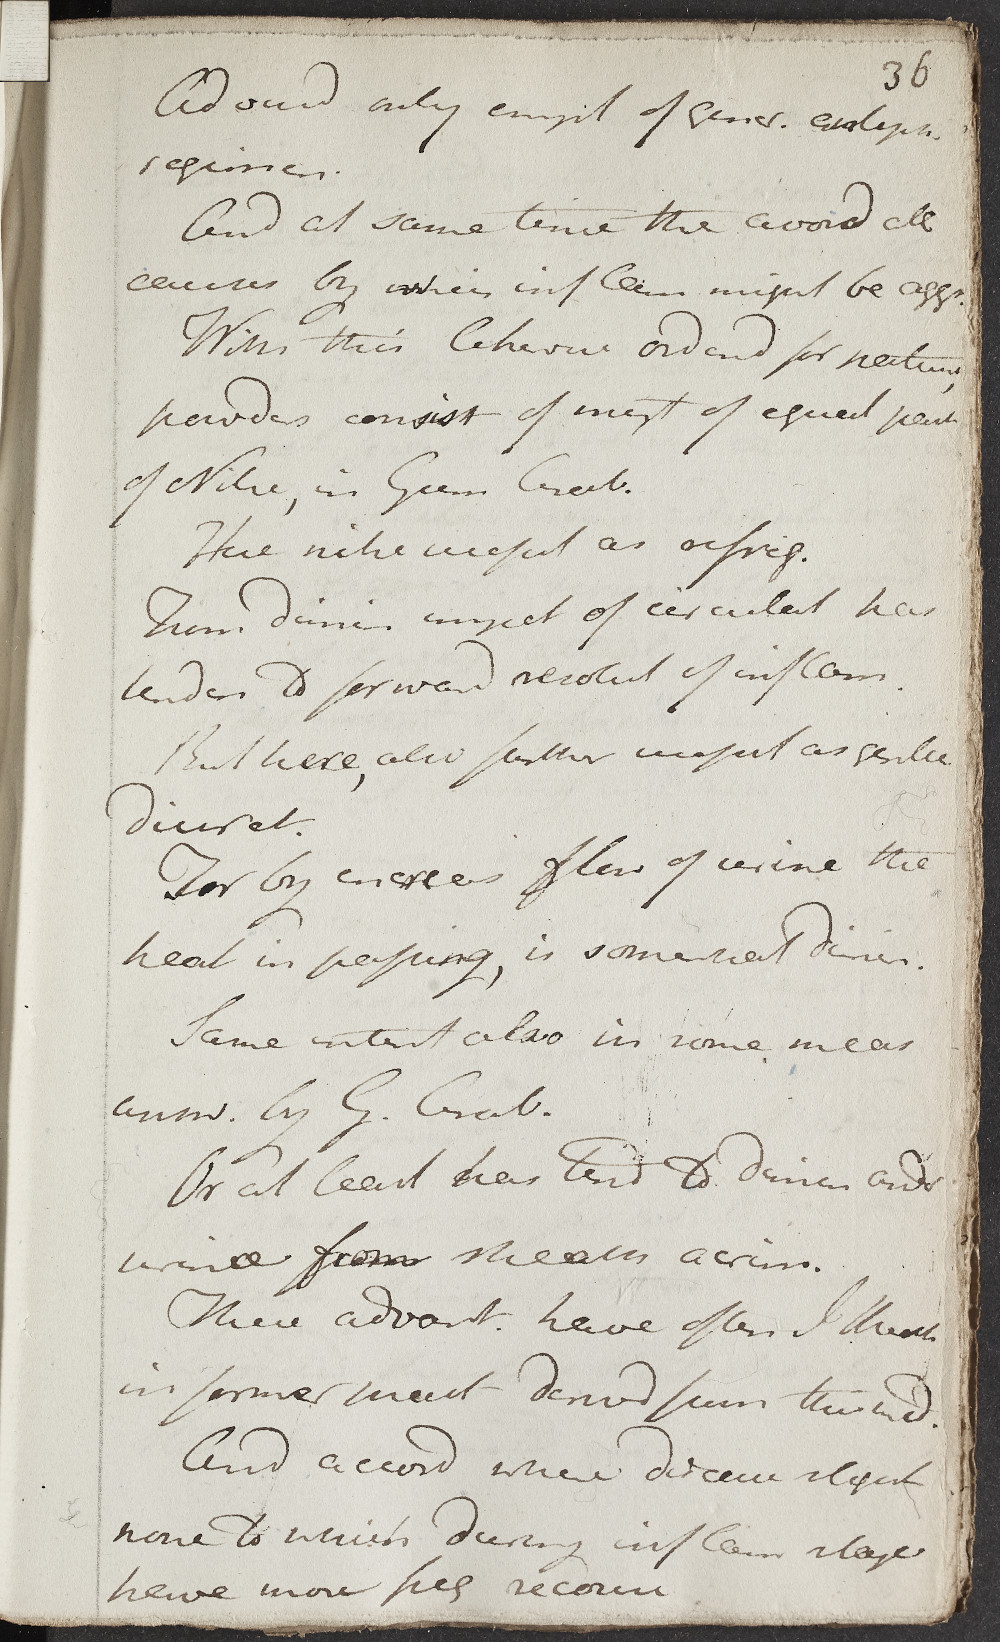 36
Advised only employt of gener. antiph.
regimen.
And at same time the avoid all
causes by which inflam might be aggr.
With this I have ordered for patient,
powders consist of mixt of equal part
of Nitre, in Gum Arab.
Here nitre useful as refrig.
From dimin impet of circulat has
tenden to forward resolut of inflam.
But here, also further useful as gentle
diuret.
For by increas flow of urine the
heat in passing, is somewhat dimin.
Same intent also in some meas
answ. by G. Arab.
Or at least has tend to dimin
urine from sheath acrim.
These advant. have often I think
in former pract derived from this med.
And accord where disease slight
none to which during inflam stage
have more freq recourse